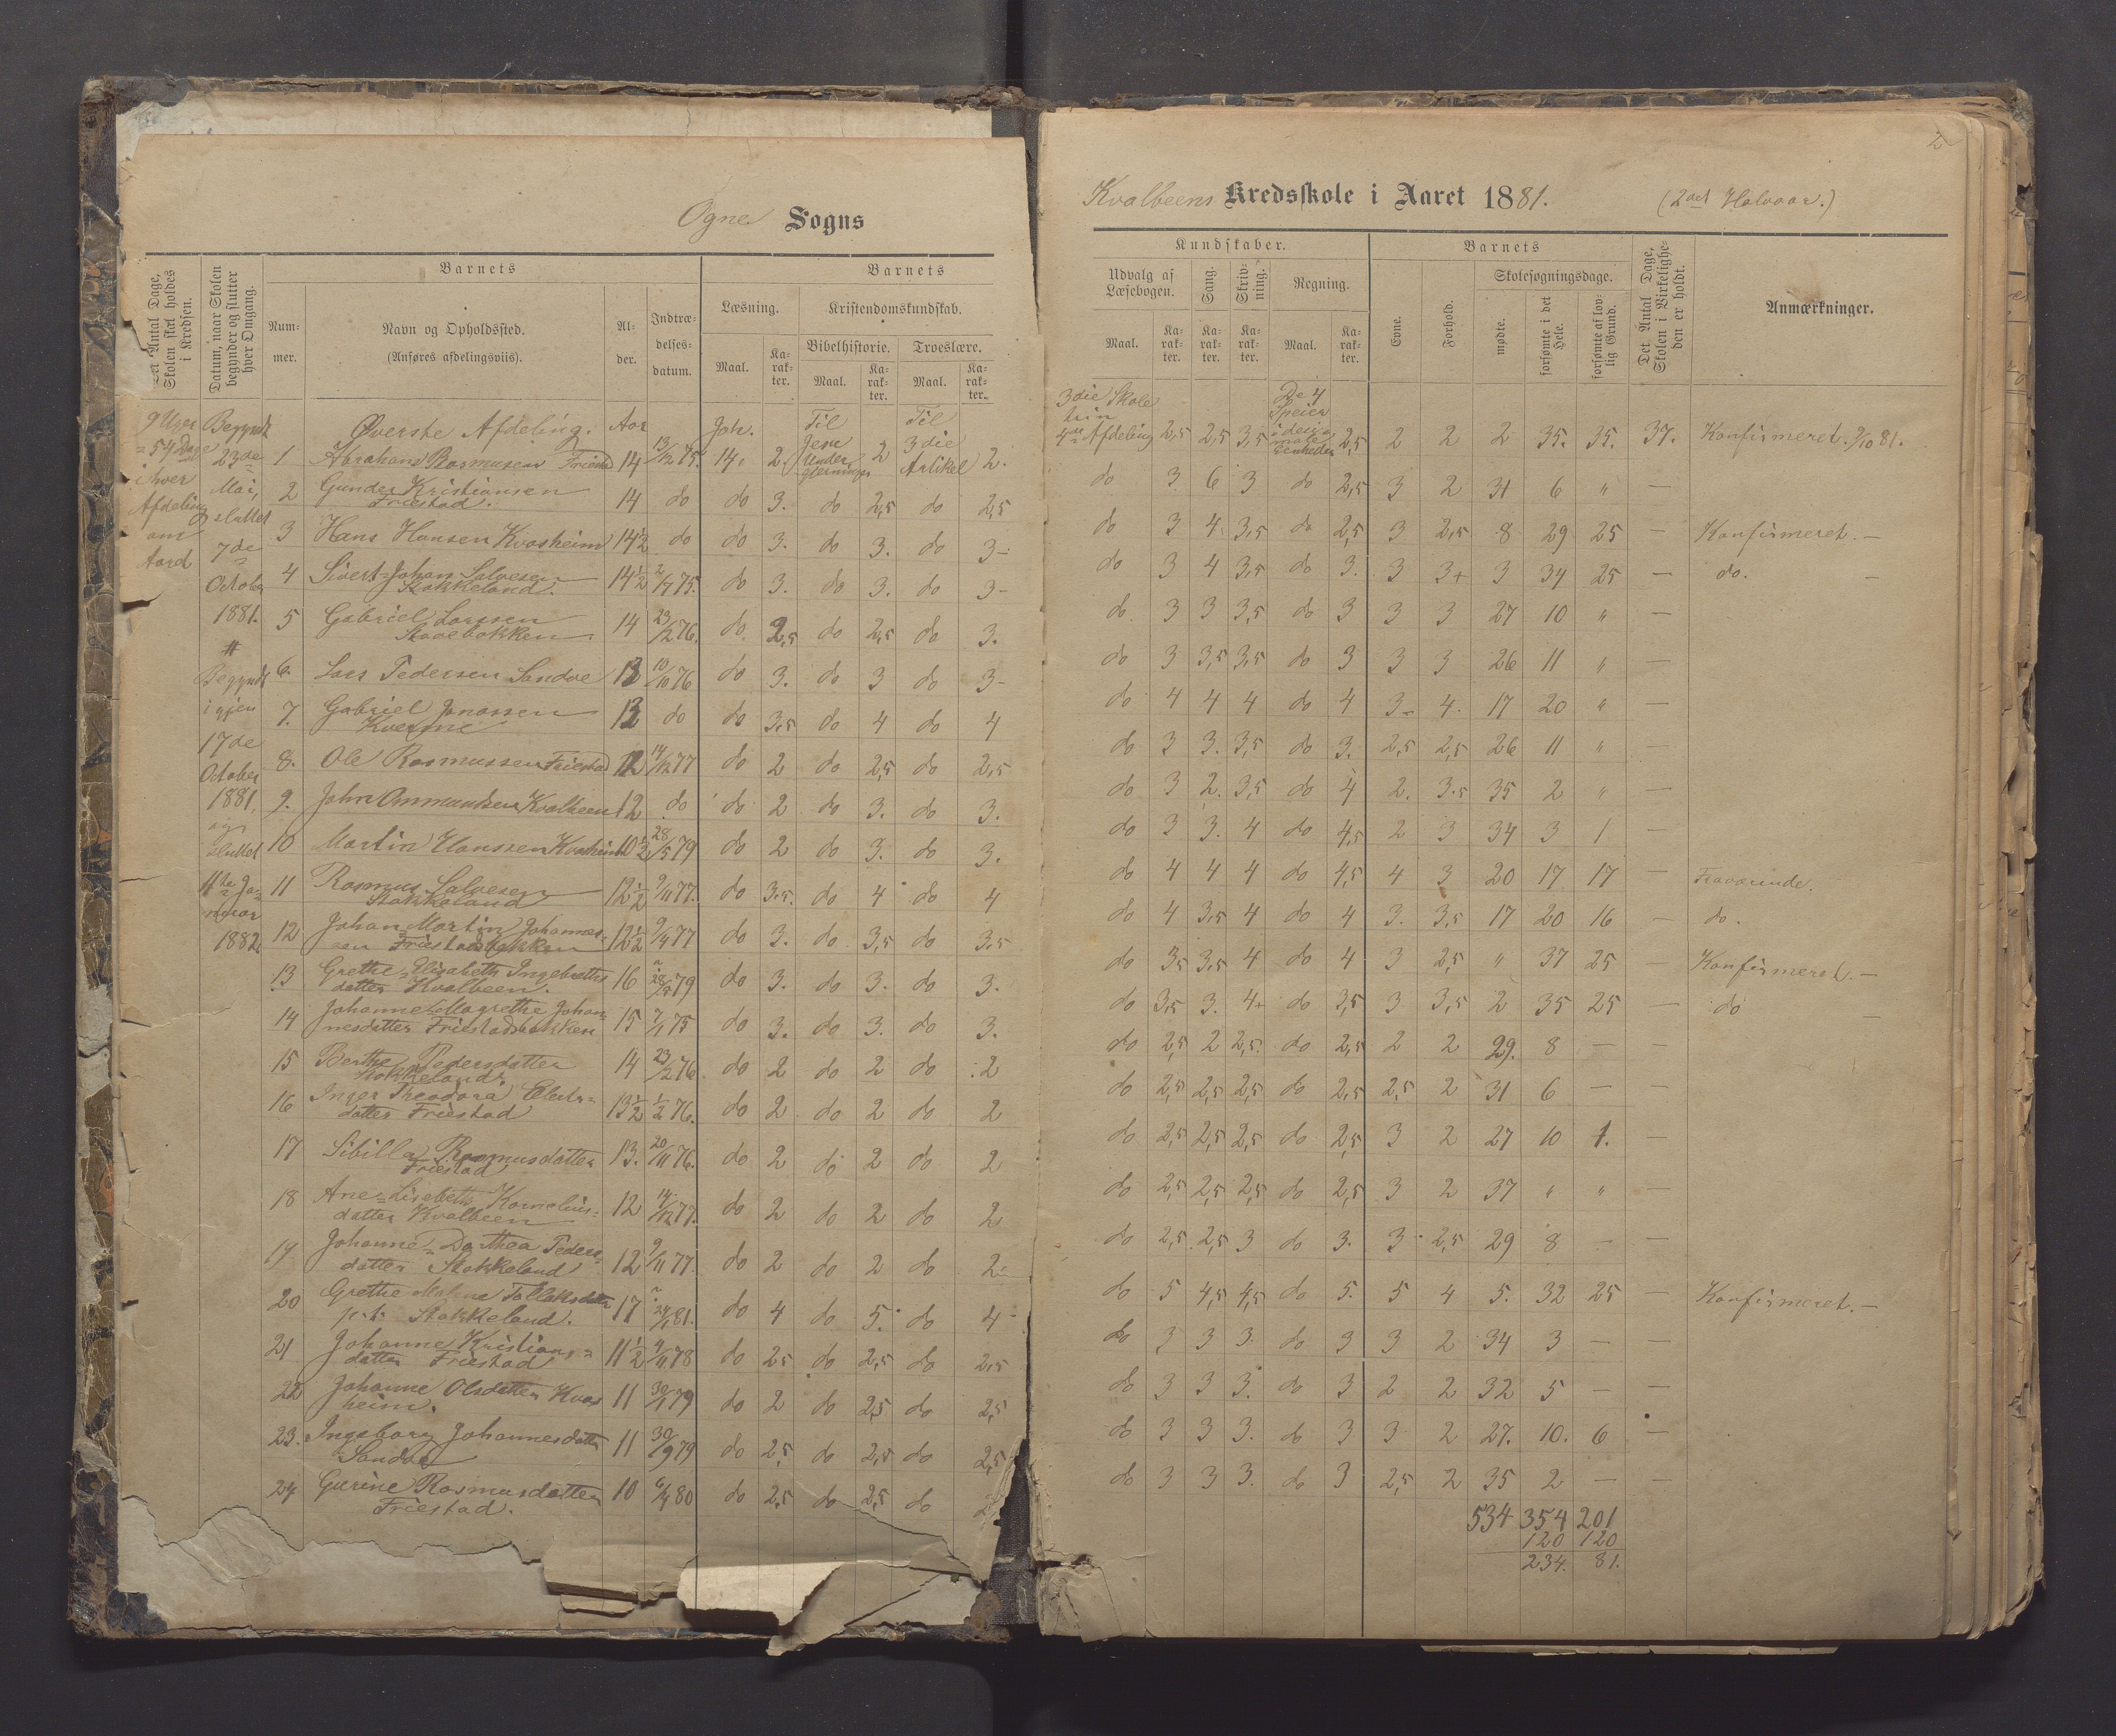 Ogne Sogns
Det Antal Dage, Skolen skal holdes i Kredsen.
Datum, naar Skolen begynder og slutter hver Omgang.
Barnets
Barnets
Num-
mer.
Navn og Opholdssted.
(Anføres afdelingsviis).
Al-
der.
Indtræ-
delses-
datum.
Læsning.
Kristendomskundskab.
Bibelhistorie. Troeslære.
Maal. Ka-rak-ter. Maal. Ka-rak-ter. Maal. Ka-rak-ter.
9 Uger
= 54 Dage
i hver
Afdeling
om
Begyndt
23de
Mai,
sluttet
7de
October
1881.
#
Begyndt
igjen
17de
October
1881,
og
sluttet
11te Ja-
nuar
1882.
Øverste Afdeling. Aar Joh. Til Til
1 Abraham Rasmusen Friestad 14 13/12 75. 14, 2. Jesu Under- 2 3die Artikel 2.
2 Gunder Kristiansen
Friestad. 14 do do 3. do 2,5 do 2,5
3 Hans Hansen Kvasheim 14½ do do 3. do 3. do 3-
4 Sivert Johan Salvesen
Stokkeland. 14½ 2/7 75. do 3. do 3. do 3-
5 Gabriel Larssen
14 23/2 76. do 2,5 do 2,5 do 3.
6. Lars Pedersen Sandve 13 10/10 76 do 3. do 3 do 3-
7. Gabriel Jonassen
13 do do 3,5 do 4 do 4
8. Ole Rasmussen Friestad 12 14/12 77 do 2 do 2,5 do 2,5
9. John Ommundsen Kvalbeen 12 do do 2 do 3. do 3.
10 Martin Hanssen Kvasheim 10½ 28/5 79 do 2 do 3. do 3.
11 Rasmus Salvesen
Stokkeland 12½ 9/11 77. do 3,5. do 4 do 4
12 Johan Martin Johannes-
sen Friestadbakken 12½ 9/4 77 do 3. do 3,5 do 3,5
13 Grethe Elisabeth Ingebretts
datter Kvalbeen. 16 79 do 3. do 3. do 3.
14 Johanne Magrethe Johan-
nesdatter Friestadbakken 15 7/1 75 do 3. do 3. do 3.
15 Berthe Pedersdatter
Stokkeland. 14 23/2 76 do 2 do 2 do 2
16 Inger Theodora
datter Friestad 13½ 1/2 76. do 2 do 2 do 2
17 Sibilla Rasmusdatter
Friestad 13. 20/11 76. do 2 do 2 do 2
18 Ane Lisabeth Kornelius-
datter Kvalbeen 12 14/12 77. do 2 do 2 do 2
19 Johanne Dorthea Peders-
datter Stokkeland 12 9/11 77. do 2 do 2 do 2
20 Grethe Malene Tollaksdatter
p. t. Stokkeland. 17 81. do 4 do 5. do 4
21 Johanne Kristians-
datter Friestad 11½ 4/11 78 do 2,5 do 2,5 do 2,5
22 Johanne Olsdatter Kvas
heim. 11 30/1 79 do 2 do 2,5 do 2,5
23. Ingeborg Johannesdatter
Sandve 11 30/9 79 do 2,5 do 2,5 do 2,5
24 Gurine Rasmusdatter
Friestad. 10 6/4 80 do 2,5 do 2,5 do
2
Kvalbeens Kredsskole i Aaret 1881. (2det Halvaar.)
Kundskaber.
Barnets
Det Antal Dage, Skolen i Virkelighe-den er holdt.
Anmærkninger.
Udvalg af
Læsebogen.
Sang.
Skriv-
ning.
Regning.
Evne.
Forhold.
Skolesøgningsdage.
mødte.
forsømte i det Hele.
forsømte af lov-lig Grund.
Maal. Ka-rak-ter. Ka-rak-ter. Ka-rak-ter. Maal. Ka-rak-ter.
3die Skole
trin
De 4
Speier
4de Afdeling 2,5 2,5 3,5 i decimale Eenheder 2,5 2 2 2 35. 35. 37. Konfirmeret. 9/10 81.
do 3 6 3 do 2,5 3 2 31 6 " —
do 3 4 3,5 do 2,5 3 2,5 8 29 25 — Konfirmeret. —
do 3 4 3,5 do 3. 3 3+ 3 34 25 — do. —
do 3 3 3,5 do 3 3 3 27 10 " —
do 3 3,5 3,5 do 3 3 3 26 11 " —
do 4 4 4 do 4 3- 4. 17 20 " —
do 3 3. 3,5 do 3. 2,5 2,5 26 11 " —
do 3 2. 3,5 do 4 2. 3,5 35 2 " —
do 3 3. 4 do 4,5 2 3 34 3 1 —
do 4 4 4 do 4,5 4 3 20 17 17 — Fraværende.
do 4 3,5 4 do 4 3. 3,5 17 20 16 — do.
do 3,5 3,5 4 do 4 3 2,5 " 37 25 — Konfirmeret. —
do 3,5 3. 4+ do 3,5 3 3,5 2 35 25 — do —
do 2,5 2 2,5. do 2,5 2 2 29. 8 — —
do 2,5 2,5 2,5 do 2,5 2,5 2 31 6 — —
do 2,5 2,5 2,5 do 2,5 3 2 27 10 1. —
do 2,5 2,5 2,5 do 2,5 3 2 37 " " —
do 2,5 2,5 3 do 3. 3 2,5 29 8 — —
do 5 4,5 4,5 do 5. 5 4 5. 32 25 — Konfirmeret. —
do 3 3 3. do 3 3 2 34 3 — —
do 3 3 3. do 3 2 2 32 5 — —
do 3 3 3. do 3 3 2 27. 10. 6 —
do 3 3 3. do 3 2,5 2 35 2 — —
534 354 201
120 120
234. 81.